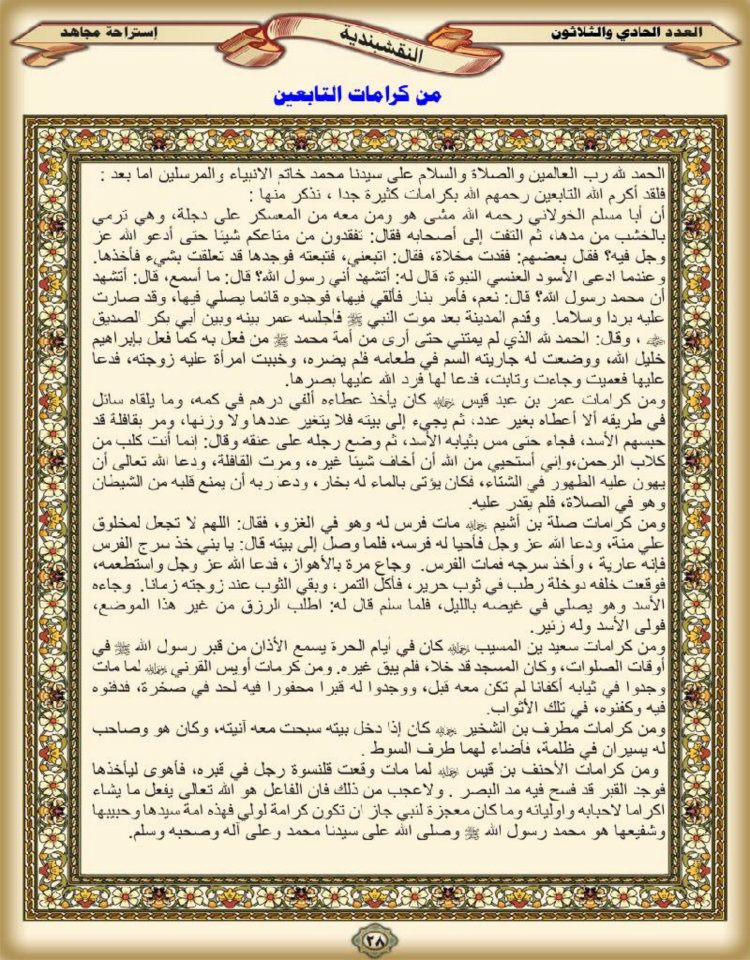 العدد الحادي والثلاثون
النقشبندية
إستراحة مجاهد
من كرامات التابعين
الحمد لله رب العالمين والصلاة والسلام على سيدنا محمد خاتم الانبياء والمرسلين اما بعد :
فلقد أكرم الله التابعين رحمهم الله بكرامات كثيرة جدا ، نذكر منها :
أن أبا مسلم الخولاني رحمه الله مشى هو ومن معه من المعسكر على دجلة، وهي ترمي
بالخشب من مدها، ثم التفت إلى أصحابه فقال: تفقدون من متاعكم شيئا حتى أدعو الله عز
وجل فيه؟ فقال بعضهم: فقدت مخلاة، فقال: اتبعني، فتبعته فوجدها قد تعلقت بشيء فأخذها.
وعندما ادعى الأسود العنسي النبوة، قال له: أتشهد أني رسول الله؟ قال: ما أسمع، قال: أتشهد
أن محمد رسول الله؟ قال: نعم، فأمر بنار فألقي فيها، فوجدوه قائما يصلي فيها، وقد صارت
عليه بردا وسلاما. وقدم المدينة بعد موت النبي ﷺ فأجلسه عمر بينه وبين أبي بكر الصديق
، وقال: الحمد لله الذي لم يمتني حتى أرى من أمة محمد ﷺ من فعل به كما فعل بإبراهيم
خليل الله، ووضعت له جاريته السم في طعامه فلم يضره، وخببت امرأة عليه زوجته، فدعا
عليها فعميت وجاءت وتابت، فدعا لها فرد الله عليها بصرها.
ومن كرامات عمر بن عبد قيس كان يأخذ عطاءه ألفي درهم في كمه، وما يلقاه سائل
في طريقه ألا أعطاه بغير عدد، ثم يجيء إلى بيته فلا يتغير عددها ولا وزنها، ومر بقافلة قد
حبسهم الأسد، فجاء حتى مس بثيابه الأسد، ثم وضع رجله على عنقه وقال: إنما أنت كلب من
كلاب الرحمن،وإني أستحيي من الله أن أخاف شيئا غيره، ومرت القافلة، ودعا الله تعالى أن
يهون عليه الطهور في الشتاء، فكان يؤتى بالماء له بخار، ودعا ربه أن يمنع قلبه من الشيطان
وهو في الصلاة، فلم يقدر عليه.
ومن كرامات صلة بن أشيم مات فرس له وهو في الغزو، فقال: اللهم لا تجعل لمخلوق
علي منة، ودعا الله عز وجل فأحيا له فرسه، فلما وصل إلى بيته قال: يا بني خذ سرج الفرس
فإنه عارية ، وأخذ سرجه فمات الفرس. وجاع مرة بالأهواز، فدعا الله عز وجل واستطعمه،
فوقعت خلفه دوخلة رطب في ثوب حرير، فأكل التمر، وبقي الثوب عند زوجته زمانا. وجاءه
الأسد وهو يصلي في غيضه بالليل، فلما سلم قال له: اطلب الرزق من غير هذا الموضع،
فولى الأسد وله زئير.
ومن كرامات سعيد بن المسيب كان في أيام الحرة يسمع الأذان من قبر رسول الله ﷺ في
أوقات الصلوات، وكان المسجد قد خلا، فلم يبق غيره. ومن كرمات أويس القرني لما مات
وجدوا في ثيابه أكفانا لم تكن معه قبل، ووجدوا له قبرا محفورا فيه لحد في صخرة، فدفنوه
فيه وكفنوه، في تلك الأثواب.
ومن كرامات مطرف بن الشخير كان إذا دخل بيته سبحت معه آنيته، وكان هو وصاحب
له يسيران في ظلمة، فأضاء لهما طرف السوط .
ومن كرامات الأحنف بن قيس لما مات وقعت قلنسوة رجل في قبره، فأهوى ليأخذها
فوجد القبر قد فسح فيه مد البصر . ولاعجب من ذلك فان الفاعل هو الله تعالى يفعل ما يشاء
اكراما لاحبابه واوليائه وما كان معجزة لنبي جاز ان تكون كرامة لولي فهذه امة سيدها وحبيبها
وشفيعها هو محمد رسول الله ﷺ وصلى الله على سيدنا محمد وعلى آله وصحبه وسلم.
٢٨